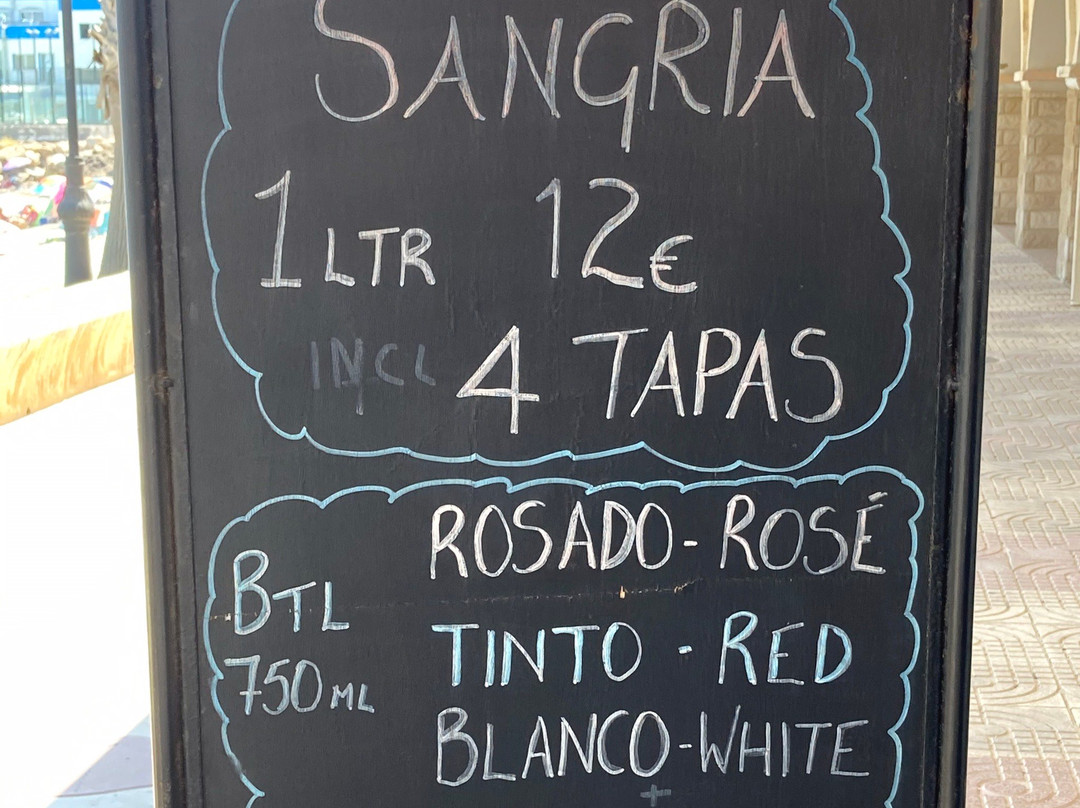 SANGRIA
1 LTR 12€
INCL 4 TAPAS
ROSADO - ROSÉ
BTL
TINTO - RED
750ML
BLANCO - WHITE
+